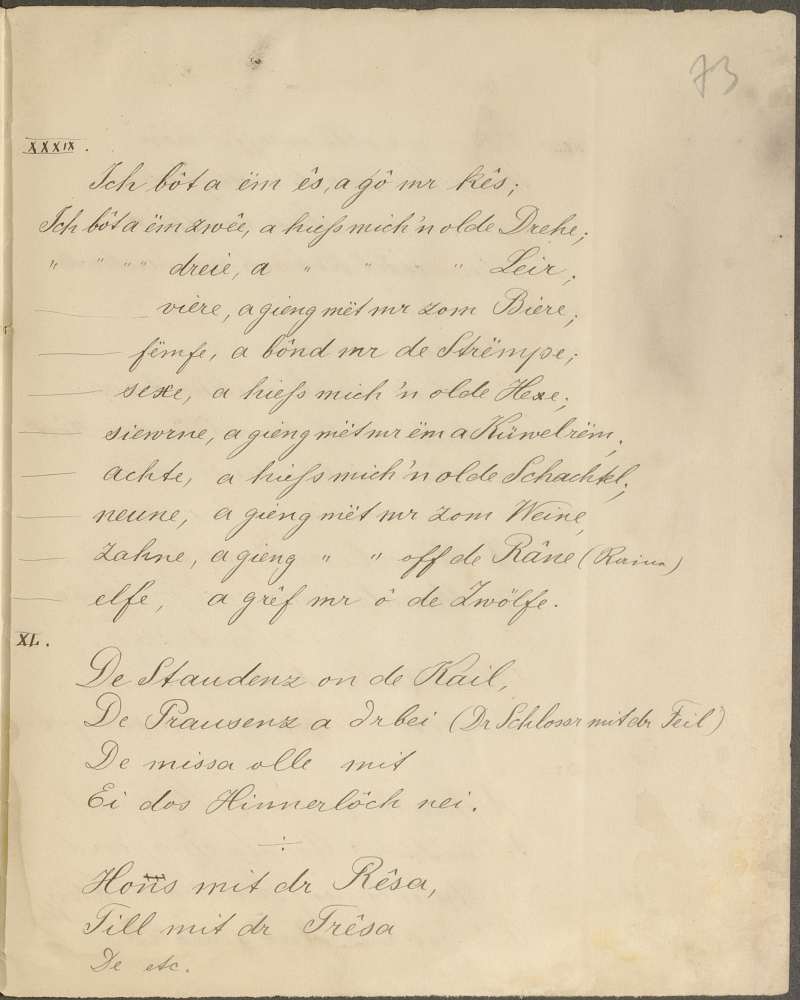 73
XXXIX.
Ich bôt a ëm ês, a gô mr kês;
Ich bôt a ëm zwêe, a hieſs mich 'n olde Drehe;
" " " " dreie, a " " " " Leir;
— — viere, a gieng mët mr zom Biere;
— fëmfe, a bônd mr de Strëmpe;
— sexe, a hieſs mich 'n olde Hexe;
— siewrne, a gieng mët mr ëm a Küwelrëm;
— achte, a hieſs mich 'n olde Schachtel;
— neune, a gieng mët mr zom Weine,
— zahne, a gieng " " off de Râne
— elfe, a grêf mr ô de Zwölfe.
XL.
De Staudenz on de Kail,
De Prausenz a drbei (Dr Schlosser mit dr Feil)
De missa olle mit
Ei dos Hinnerlöch nei.
Hons mit dr Rêsa,
Till mit dr Trêsa
De etc.